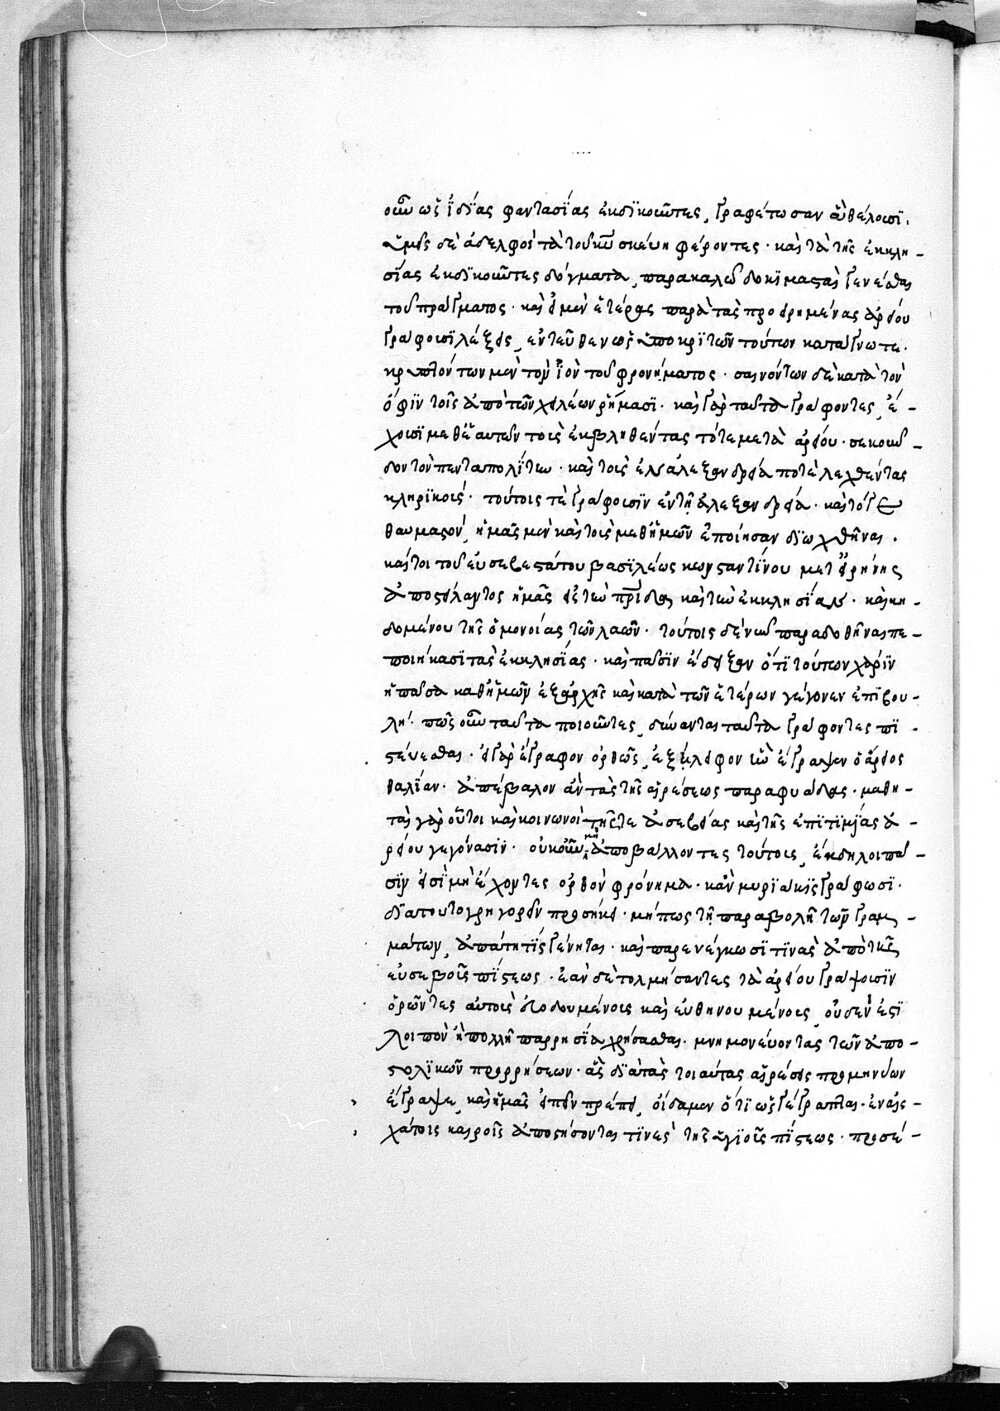 οὖν ὡς ἰδίας φαντασίας ἐκδικοῦντες, γραφέτωσαν ἃ θέλουσι.
ὑμεῖς δὲ ἀδελφοὶ τὰ τοῦ κυ σκεύη φέροντες· καὶ τὰ τῆς ἐκκλη-
σίας ἐκδικοῦντες δόγματα, παρακαλῶ δοκιμασταὶ γενέσθαι
τοῦ πράγματος· καὶ εἰ μὲν ἕτερας παρὰ τὰς προειρημένας ἀρείου
γράφουσι λέξεις, ἐντεῦθεν ὡς ὑποκριτῶν τούτων καταγνῶτε·
κρυπτόντων μὲν τὸν ἰὸν τοῦ φρονήματος· σαινόντων δὲ κατὰ τὸν
ὄφιν τοῖς ἀπὸ τῶν χειλέων ῥήμασι· καὶ γὰρ ταῦτα γράφοντες, ἔ-
χουσι μεθ' ἑαυτῶν τοὺς ἐκβληθέντας τότε μετὰ ἀρείου· σεκοῦν-
δον τὸν πενταπολίτην· καὶ τοὺς ἐν ἀλεξανδρεία ποτὲ λεχθέντας
κληρικοὺς· τούτοις τὲ γράφουσιν ἐν τῆ ἀλεξανδρεία· καὶ τό γε
θαυμαστὸν, ἡμᾶς μὲν καὶ τοὺς μεθ' ἡμῶν ἐποίησαν διωχθῆναι·
καίτοι τοῦ εὐσεβεστάτου βασιλέως κωνσταντίνου μετ' εἰρήνης
ἀποστείλαντος ἡμᾶς εἰς τὴν πρίδα καὶ τὴν ἐκκλησίαν· καὶ κη-
δομένου τῆς ὁμονοίας τῶν λαῶν· τούτοις δὲ νῦν παραδοθῆναι πε-
ποιήκασι τὰς ἐκκλησίας· καὶ πᾶσιν ἔδειξαν ὅτι τούτων χάριν
ἡ πᾶσα καθ' ἡμῶν ἐξαρχῆς καὶ κατὰ τῶν ἑτέρων γέγονεν ἐπιβου-
λή· πῶς οὖν ταῦτα ποιοῦντες, δύνανται ταῦτα γράφοντες πι-
στεύεσθαι· εἰ γὰρ ἔγραφον ὀρθῶς, ἐξήλειφον ἣν ἔγραψεν ὁ ἄρειος
θαλίαν· ἀπέβαλον ἂν τὰς τῆς αἱρέσεως παραφυάδας· μαθη-
τὰς γὰρ οὗτοι καὶ κοινωνοὶ τῆς τε ἀσεβείας καὶ τῆς ἐπιτιμίας ἀ-
ρείου γεγόνασιν· οὐκοῦν μὴ ἀποβάλλοντες τούτους, ἔκδηλοι πᾶ-
σιν εἰσὶ μὴ ἔχοντες ὀρθὸν φρόνημα· κἂν μυριάκις γράφωσι·
διὰ τοῦτο γρηγορεῖν προσήκει· μήπως τῆ παραβολῆ τῶν γραμ-
μάτων, ἀπάτη τὶς γένηται· καὶ παρενέγκωσι τινὰς ἀπὸ τῆς
εὐσεβοῦς πίστεως· ἐὰν δὲ τολμήσαντες τὰ ἀρείου γράψωσιν
ὁρῶντες αὐτοὺς ὁδουμένους καὶ εὐθηνουμένους, οὐδὲν ἐστὶ
λοιπὸν ἢ πολλῆ παρρησία χρήσασθαι· μνημονεύοντας τῶν ἀπο-
στολικῶν προρρήσεων· ἃς διὰ τὰς τοιαύτας αἱρέσεις προμηνύων
ἔγραψε, καὶ ἡμᾶς εἰπεῖν πρέπει, οἴδαμεν ὅτι ὡς γέγραπται· ἐν ἐσ-
χάτοις καιροῖς ἀποστήσονται τινὲς τῆς ὑγιοῦς πίστεως· προσέ-